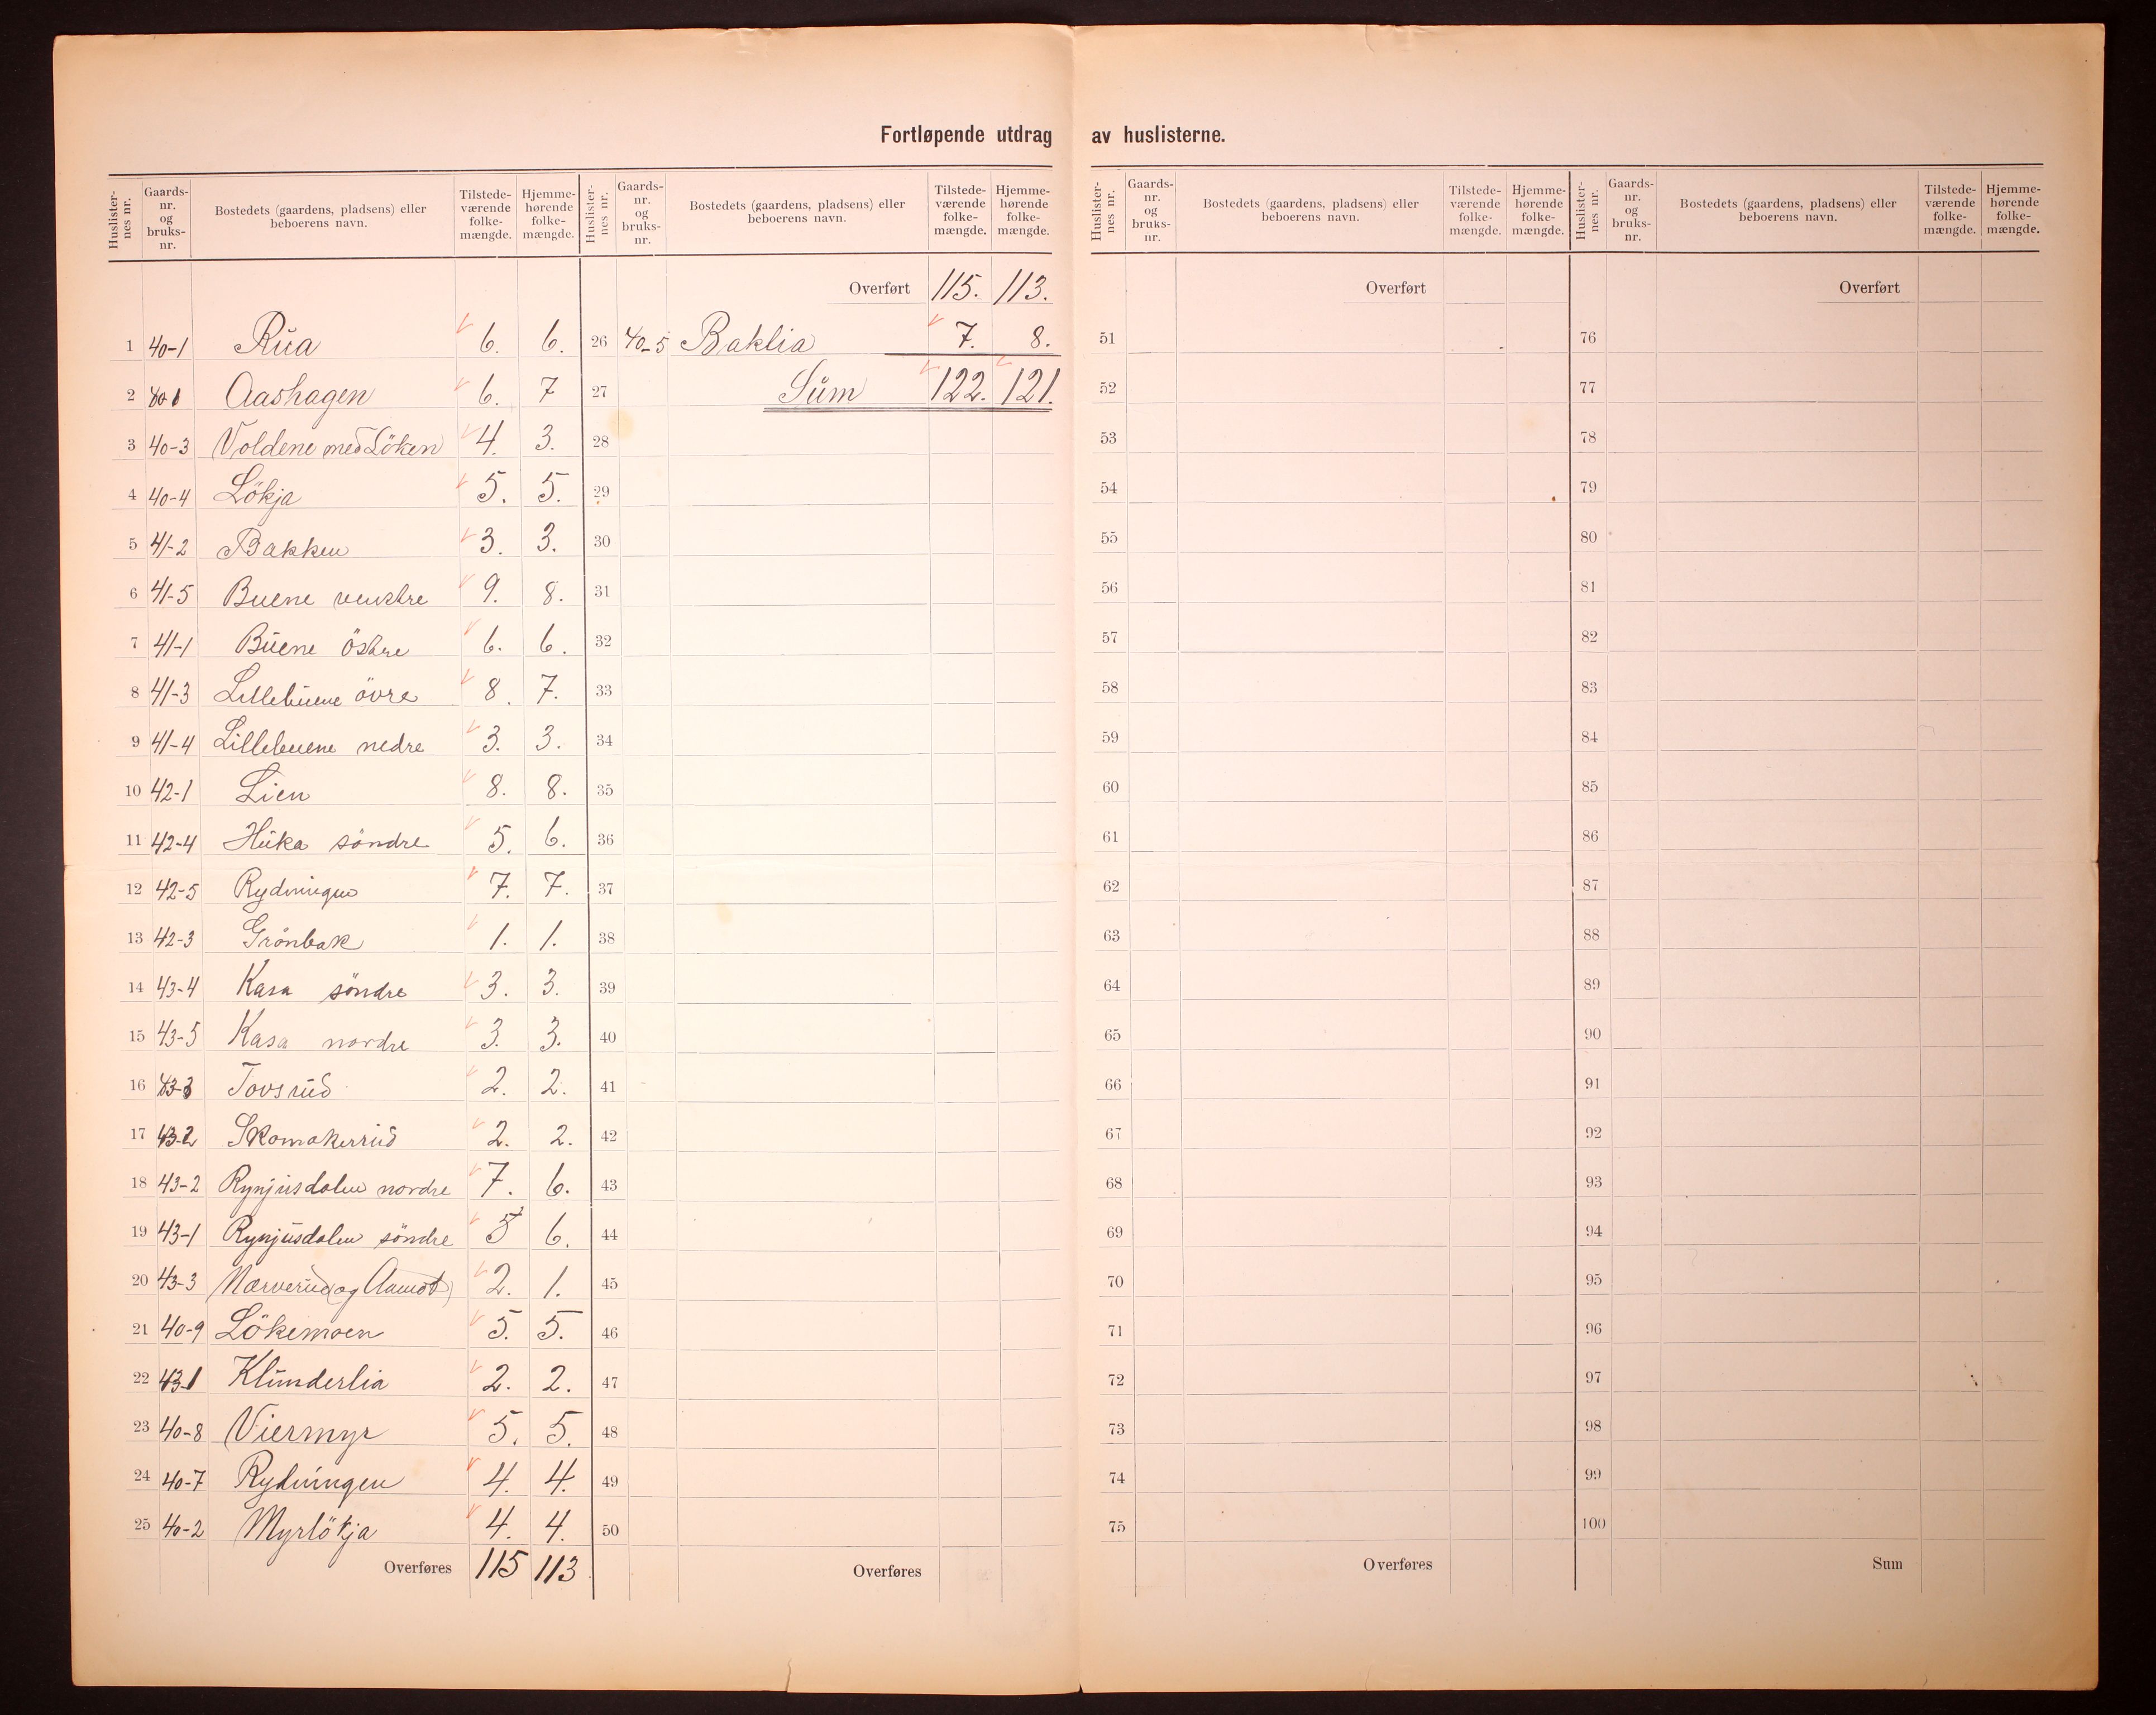 Fortløpende utdrag av huslisterne.
Huslister-nes nr. Gaards-nr. og bruks-nr. Bostedets (gaardens, pladsens) eller beboerens navn. Tilstede-værende folke-mængde. Hjemme-hørende folke-mængde.
1 40-1 Rua 6. 6.
2 40-1 Aashagen 6. 7
3 40-3 Voldene med Löken 4. 3.
4 40-4 Lökja 5. 5.
5 41-2 Bakken 3. 3.
6 41-5 Buene venstre 9. 8.
7 41-1 Buene östre 6. 6.
8 41-3 Lillebuene övre 8. 7.
9 41-4 Lillebuene nedre 3. 3.
10 42-1 Lien 8. 8.
11 42-4 Huka söndre 5. 6.
12 42-5 Rydningen 7. 7.
13 42-3 Grönbak 1. 1.
14 43-4 Kasa söndre 3. 3.
15 43-5 Kasa nordre 3. 3.
16 43-3 Tovsrud 2. 2.
17 43-2 Skomakerrud 2. 2.
18 43-2 Rynjusdalen nordre 7. 6.
19 43-1 Rynjusdalen söndre 5 6.
20 43-3 Nærverud (og Aamot) 2. 1.
21 40-9 Lökemoen 5. 5.
22 43-1 Klunderlia 2. 2.
23 40-8 Viermyr 5. 5.
24 40-7 Rydningen 4. 4.
25 40-2 Myrlökja 4. 4.
Overføres 115 113
Huslister-nes nr. Gaards-nr. og bruks-nr. Bostedets (gaardens, pladsens) eller beboerens navn. Tilstede-værende folke-mængde. Hjemme-hørende folke-mængde.
Overført 115. 113.
26 40-5 Baklia 7. 8.
27 Sum 122. 121.
28
29
30
31
32
33
34
35
36
37
38
39
40
41
42
43
44
45
46
47
48
49
50
Overføres
Huslister-nes nr. Gaards-nr. og bruks-nr. Bostedets (gaardens, pladsens) eller beboerens navn. Tilstede-værende folke-mængde. Hjemme-hørende folke-mængde.
Overført
51
52
53
54
55
56
57
58
59
60
61
62
63
64
65
66
67
68
69
70
71
72
73
74
75
Overføres
Huslister-nes nr. Gaards-nr. og bruks-nr. Bostedets (gaardens, pladsens) eller beboerens navn. Tilstede-værende folke-mængde. Hjemme-hørende folke-mængde.
Overført
76
77
78
79
80
81
82
83
84
85
86
87
88
89
90
91
92
93
94
95
96
97
98
99
100
Sum